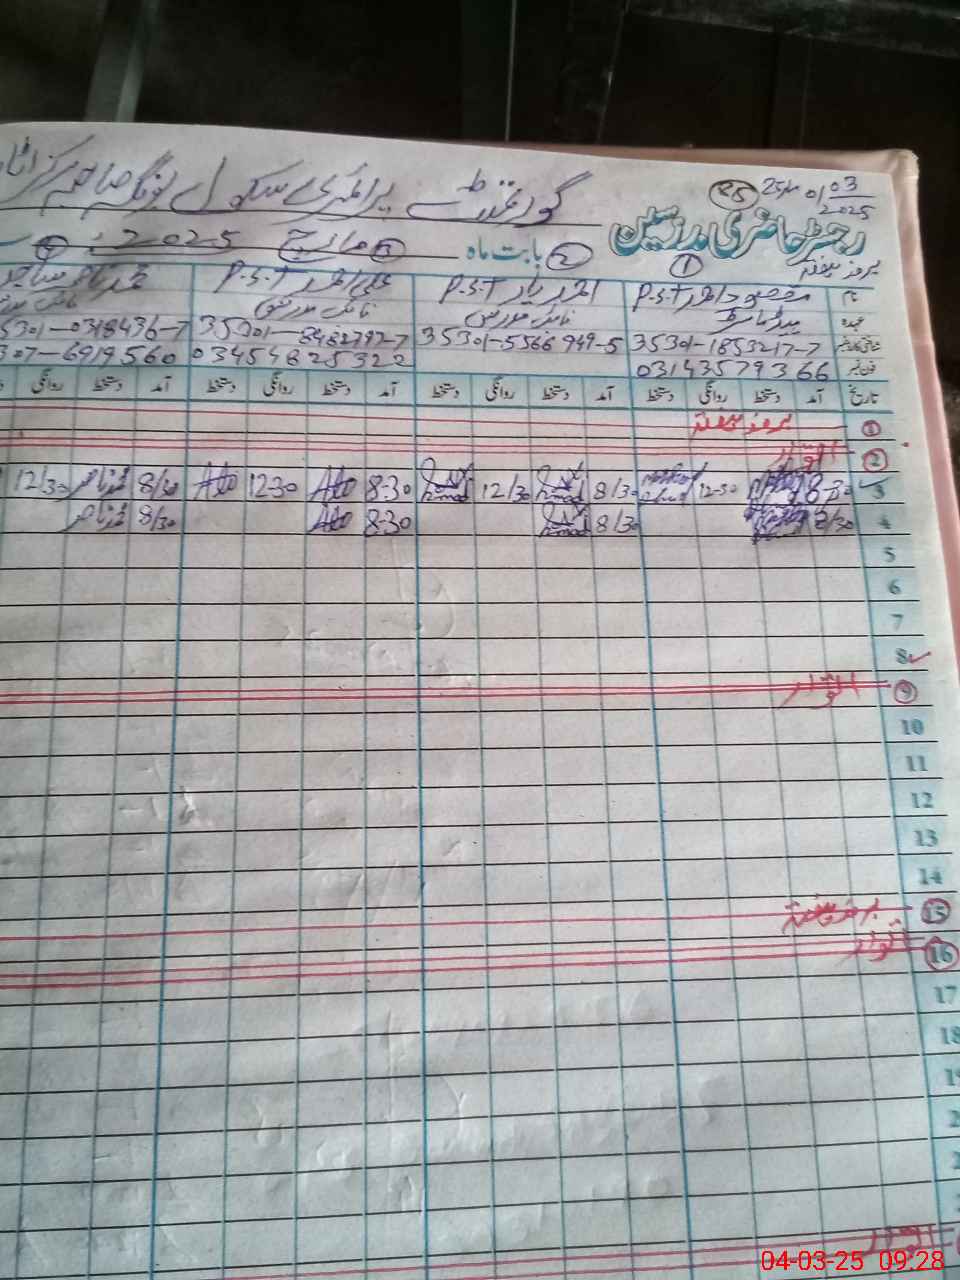 01/03/2025
گورنمنٹ پرائمری سکول
رجسٹر حاضری مدرسین
بابت ماہ مارچ 2025
بروز ہفتہ
نام مقصود احمد P.S.T احمد یار P.S.T علی احمد P.S.T
عہدہ ہیڈ ماسٹر نائب مدرس نائب مدرس
شناختی کارڈ نمبر 35301-1853217-7 35301-5566949-5 35301-8482797-7 35301-0318436-7
فون نمبر 03143579366 03454825322 307-6919560
تاریخ آمد دستخط روانگی دستخط آمد دستخط روانگی دستخط آمد دستخط روانگی دستخط آمد دستخط روانگی
1 بروز ہفتہ
2 اتوار
3 8/30 12-30 8/30 12/30 8-30 12-30 8/30 12/30
4 8/30 8/30 8-30 8/30
5
6
7
8
9 اتوار
10
11
12
13
14
15 بروز ہفتہ
16 اتوار
17
18
اتوار
04-03-25 09:28